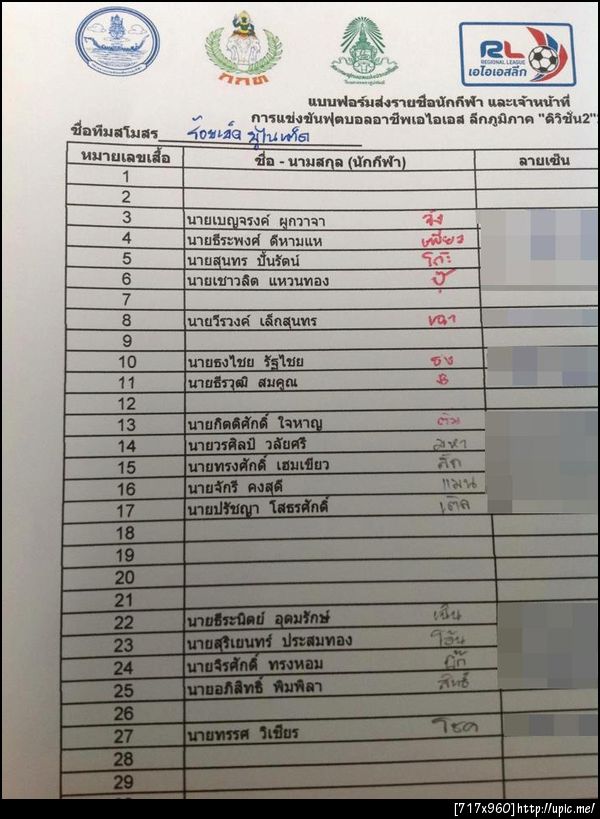 กกท
RL
REGIONAL LEAGUE
เอไอเอสลีก
แบบฟอร์มส่งรายชื่อนักกีฬา และเจ้าหน้าที่
การแข่งขันฟุตบอลอาชีพเอไอเอส ลีกภูมิภาค "ดิวิชั่น2"
ชื่อทีมสโมสร ร้อยเอ็ด ยูไนเต็ด
หมายเลขเสื้อ ชื่อ - นามสกุล (นักกีฬา) ลายเซ็น
1
2
3 นายเบญจรงค์ ผูกวาจา
4 นายธีระพงศ์ ดีหามแห เพียว
5 นายสุนทร ปั้นรัตน์ โก๊ะ
6 นายเชาวลิต แหวนทอง ปุ๊
7
8 นายวีรวงค์ เล็กสุนทร
9
10 นายธงไชย รัฐไชย ธง
11 นายธีรวุฒิ สมคูณ
12
13 นายกิตติศักดิ์ ใจหาญ ติม
14 นายวรศิลป์ วลัยศรี
15 นายทรงศักดิ์ เฮมเขียว ศักดิ์
16 นายจักรี คงสุดี แมน
17 นายปรัชญา โสธรศักดิ์
18
19
20
21
22 นายธีระนิตย์ อุดมรักษ์
23 นายสุริเยนทร์ ประสมทอง
24 นายจิรศักดิ์ ทรงหอม กุ๊ก
25 นายอภิสิทธิ์ พิมพิลา สิทธิ์
26
27 นายทรรศ วิเชียร โชค
28
29
[717x960]http://upic.me/